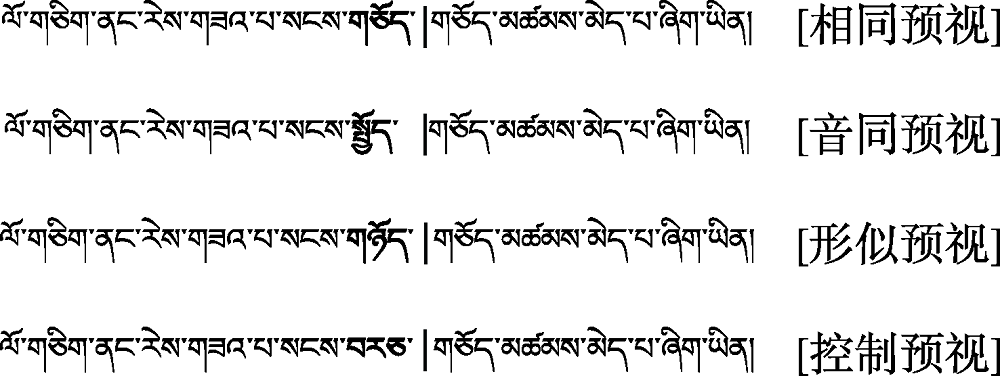 ལོ་གཅིག་ནང་རེས་གཟའ་པ་སངས་གཅོད་ |གཅོད་མཚམས་མེད་པ་ཞིག་ཡིན། [相同预视]
ལོ་གཅིག་ནང་རེས་གཟའ་པ་སངས་སྤྱོད་ |གཅོད་མཚམས་མེད་པ་ཞིག་ཡིན། [音同预视]
ལོ་གཅིག་ནང་རེས་གཟའ་པ་སངས་གཉོད་ |གཅོད་མཚམས་མེད་པ་ཞིག་ཡིན། [形似预视]
ལོ་གཅིག་ནང་རེས་གཟའ་པ་སངས་བརཅ་ |གཅོད་མཚམས་མེད་པ་ཞིག་ཡིན། [控制预视]